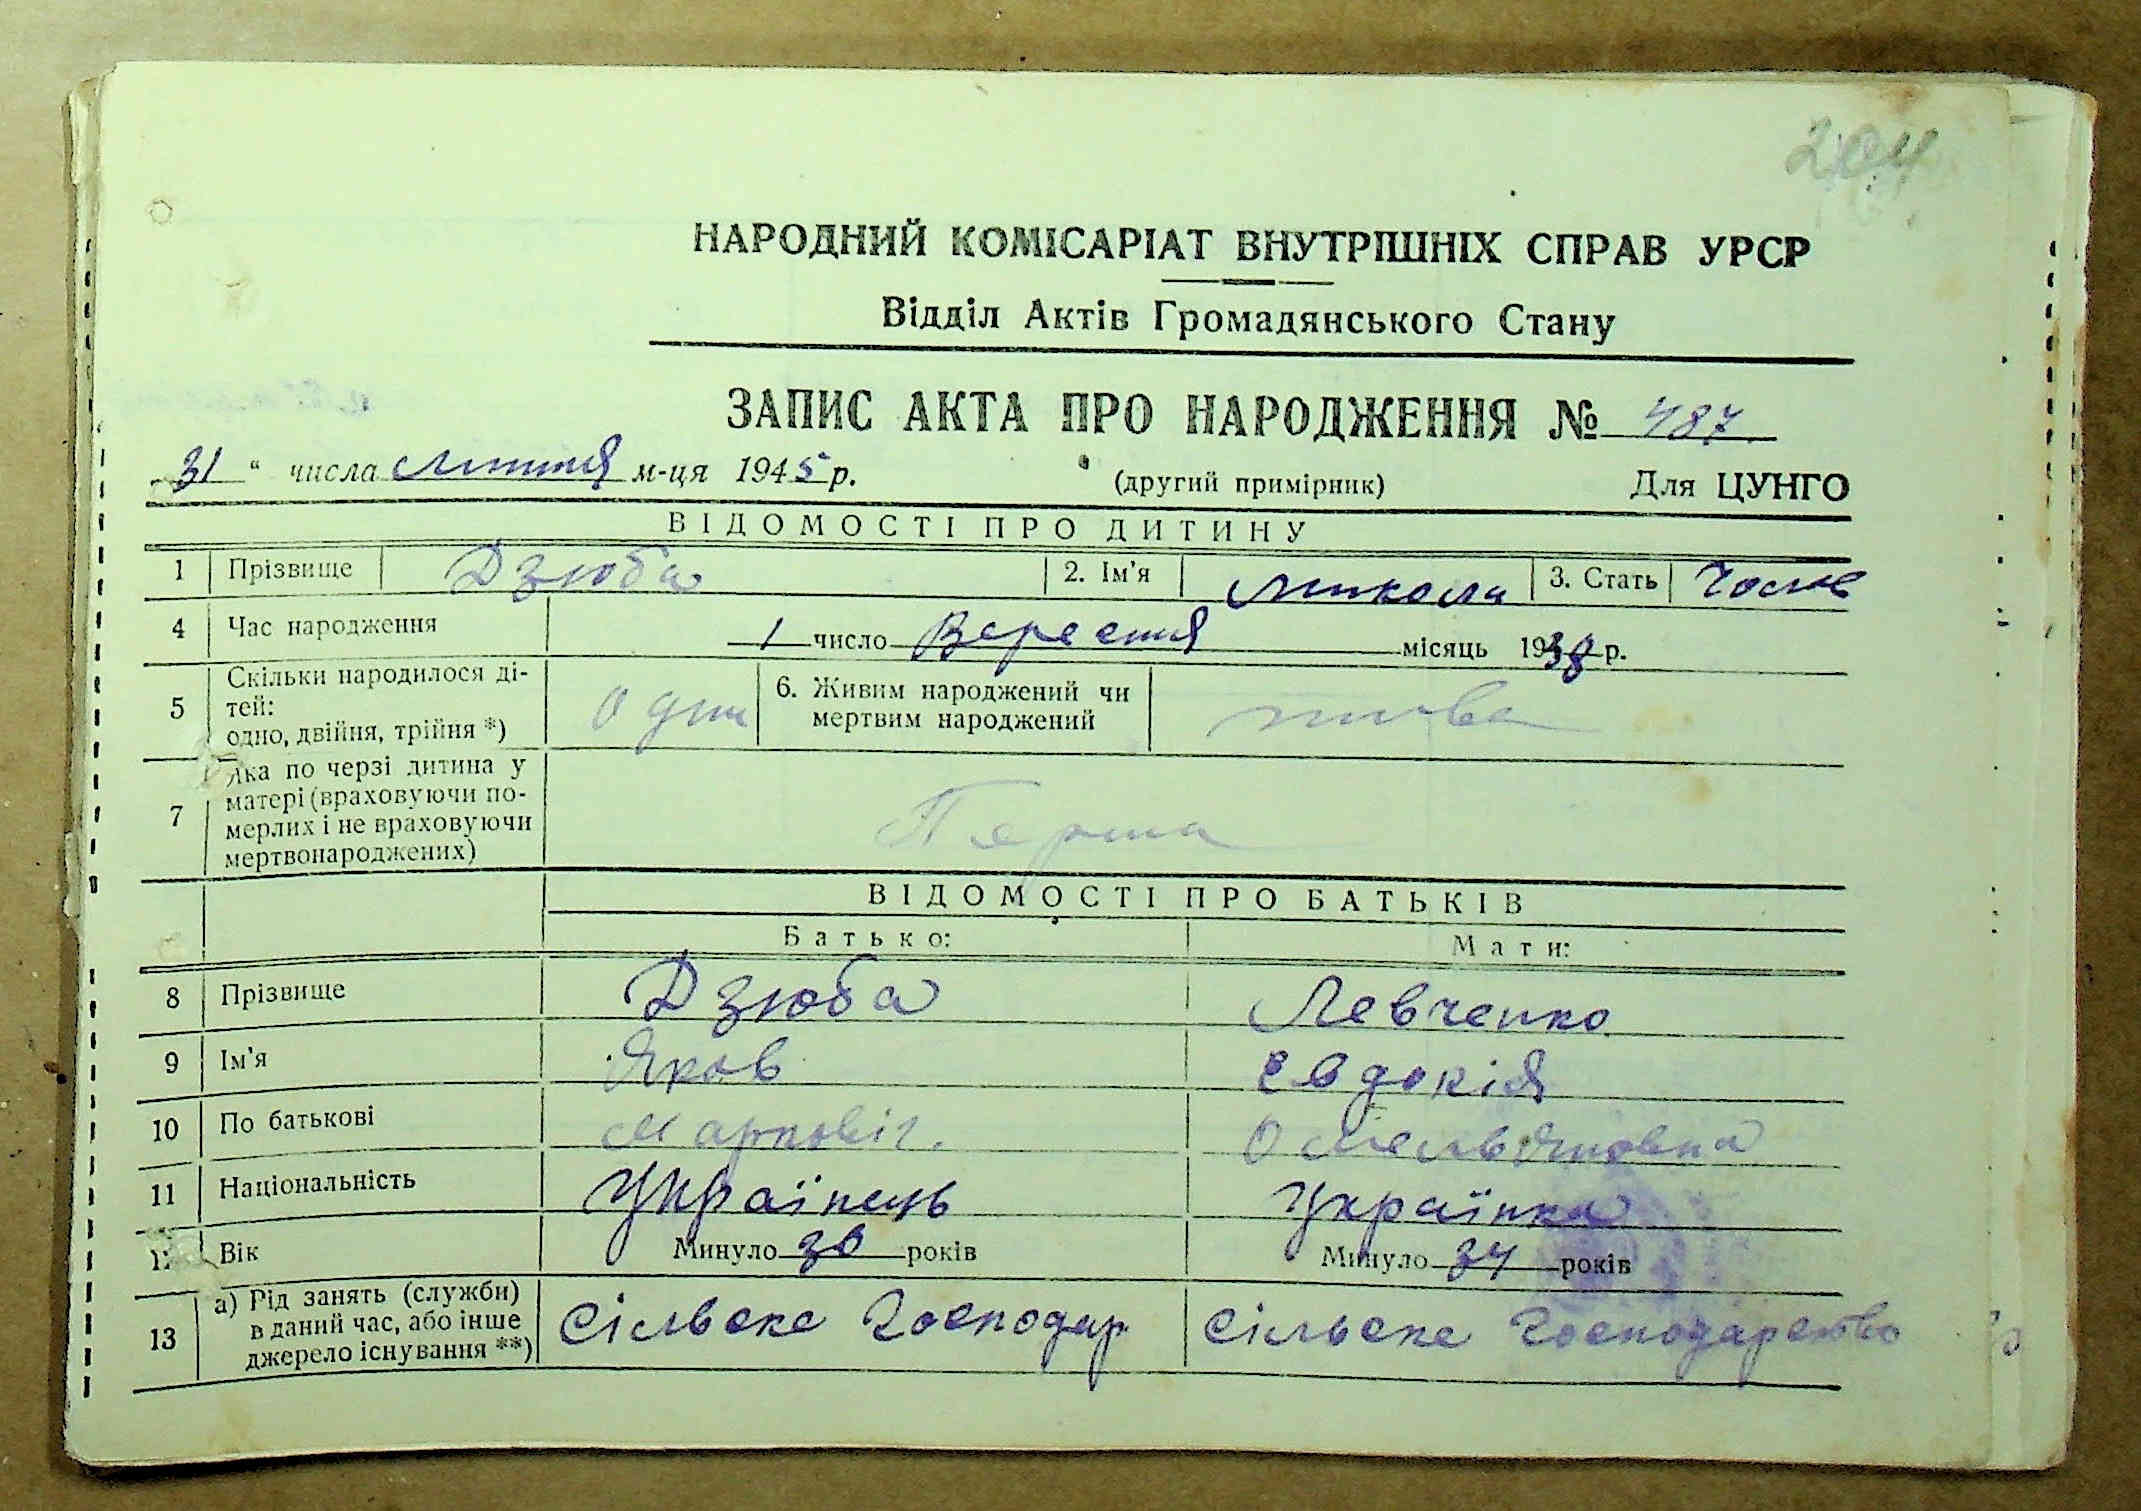 204
НАРОДНИЙ КОМІСАРІАТ ВНУТРІШНІХ СПРАВ УРСР
Відділ Актів Громадянського Стану
ЗАПИС АКТА ПРО НАРОДЖЕННЯ № 487
31 “ числа Липня м-ця 1945 р. (другий примірник) Для ЦУНГО
ВІДОМОСТІ ПРО ДИТИНУ
1 Прізвище Дзюба 2. Ім'я Микола 3. Стать Чолов
4 Час народження 1 число Вересня місяць 1938 р.
5 Скільки народилося ді-
тей:
одно, двійня, трійня *) одн 6. Живим народжений чи
мертвим народжений
7 Яка по черзі дитина у
матері (враховуючи по-
мерлих і не враховуючи
мертвонароджених) Перша
ВІДОМОСТІ ПРО БАТЬКІВ
Батько: Мати:
8 Прізвище Дзюба Левченко
9 Ім'я Яков Евдокія
10 По батькові Маркович. Омельяновна
11 Національність Українець Українка
12 Вік Минуло 36 років Минуло 34 років
13 а) Рід занять (служби)
в даний час, або інше
джерело існування **) Сільске Господар Сільске Господарство